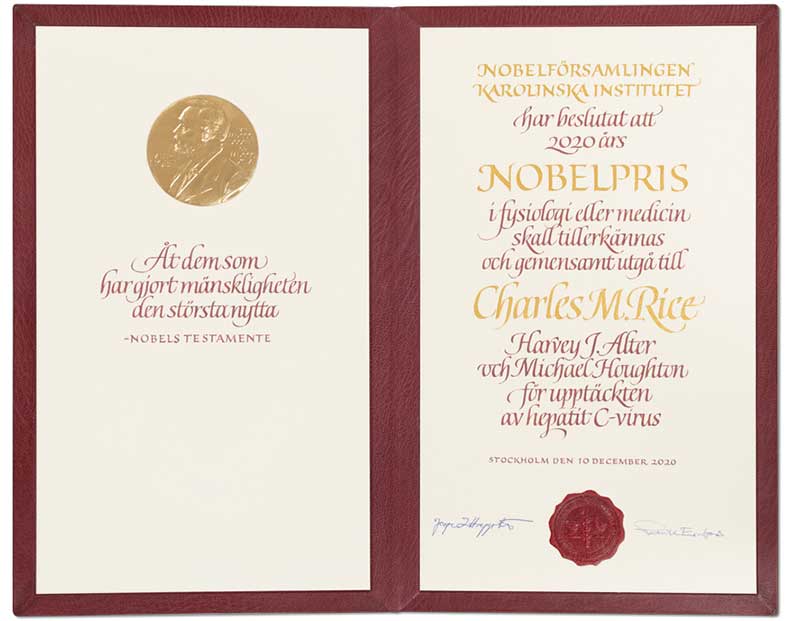 Åt dem som
har gjort mänskligheten
den största nytta
-NOBELS TESTAMENTE
NOBELFÖRSAMLINGEN
KAROLINSKA INSTITUTET
har beslutat att
2020 års
NOBELPRIS
i fysiologi eller medicin
skall tillerkännas
och gemensamt utgå till
Charles M. Rice
Harvey J. Alter
och Michael Houghton
för upptäckten
av hepatit C-virus
STOCKHOLM DEN 10 DECEMBER 2020